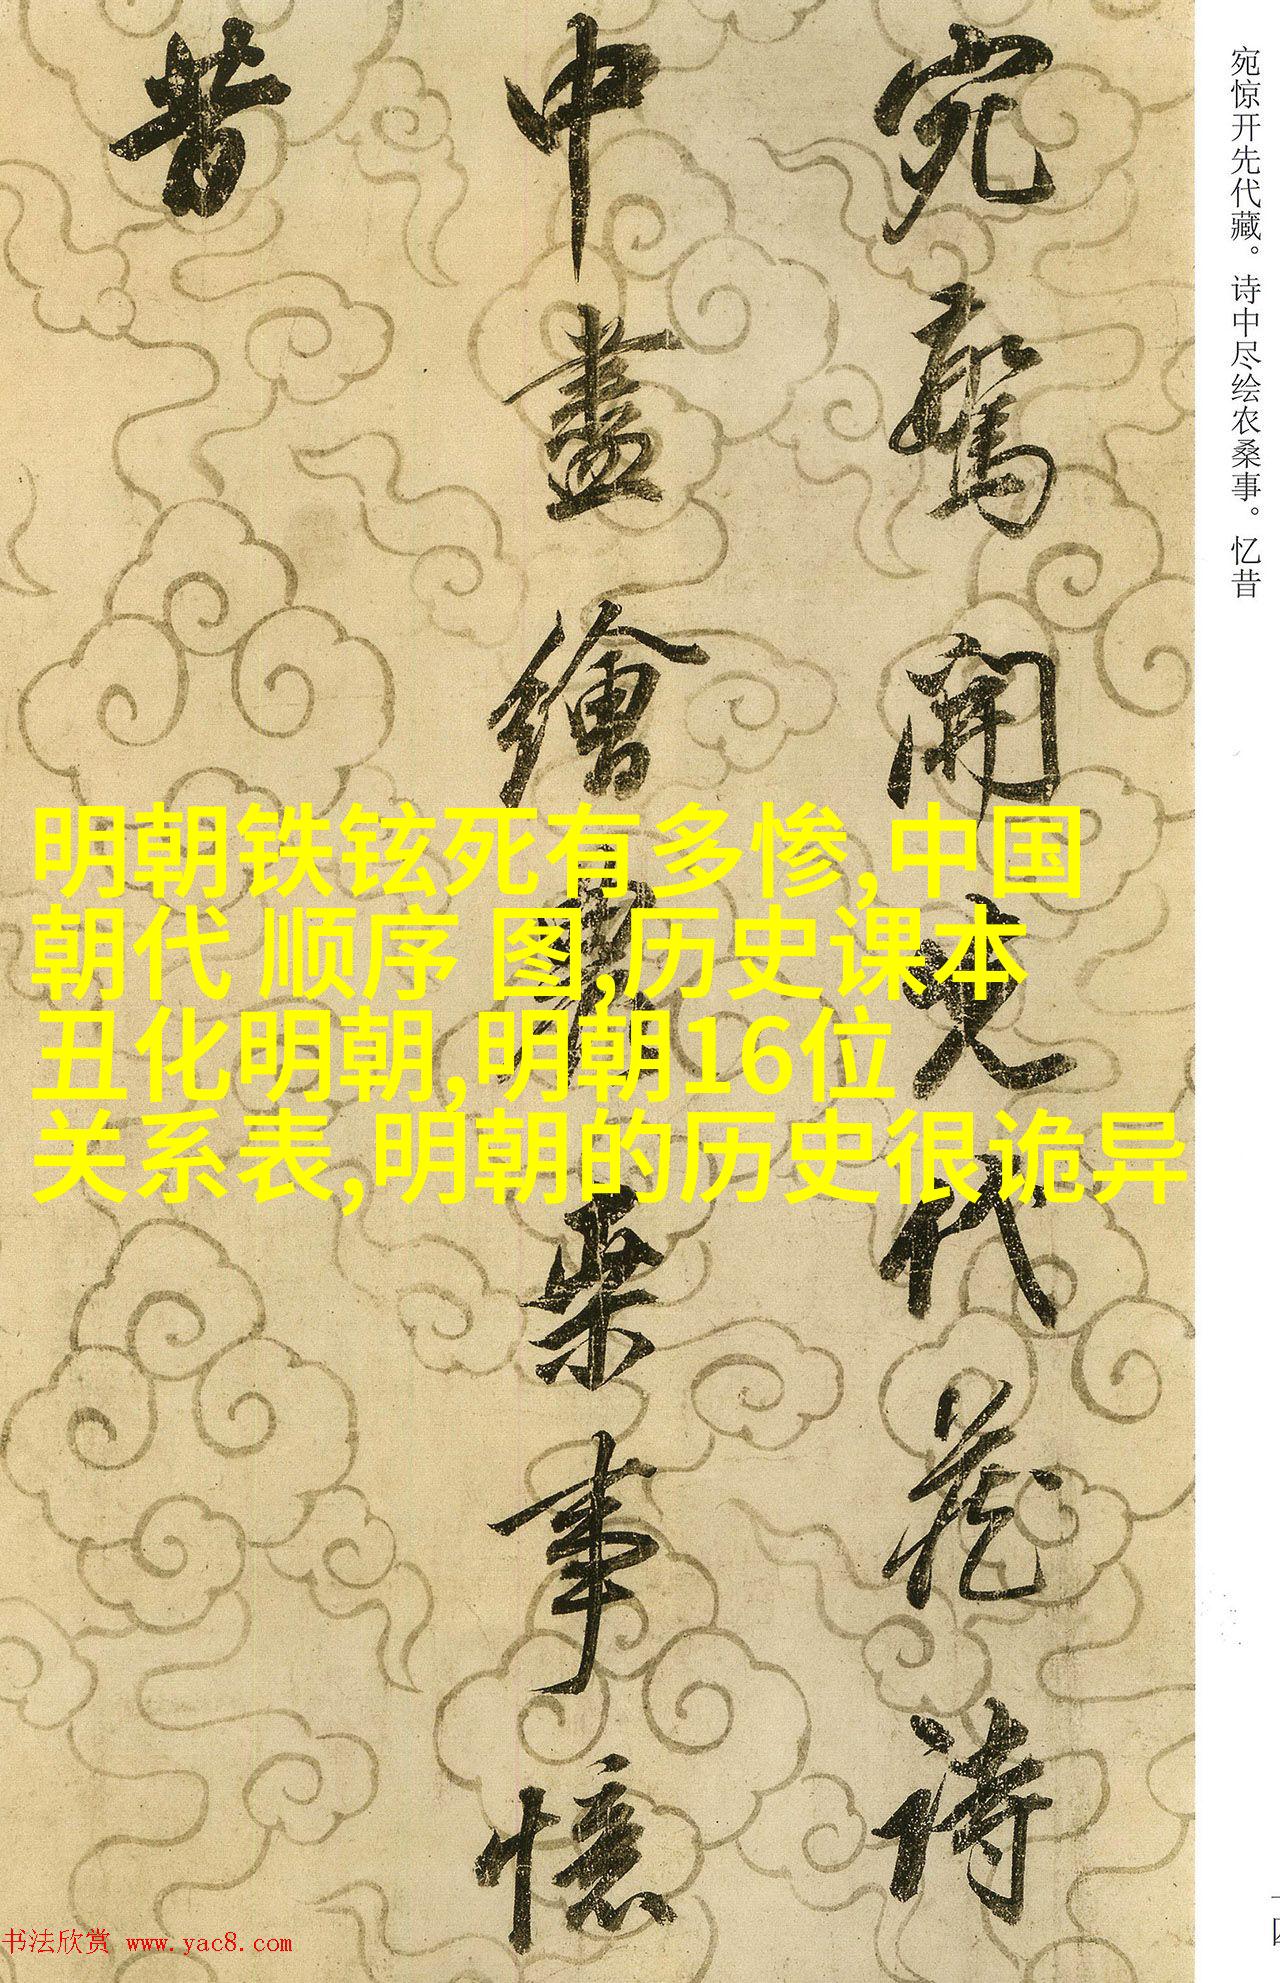 宛驚開先代藏詩
中盡繪農桑事憶
昔
宛惊开先代藏。诗中尽绘农桑事。忆昔
明朝铁铉死有多惨,中国
朝代 顺序 图,历史课本
丑化明朝,明朝16位
关系表,明朝的历史很诡异
书法欣赏 www.yac8.com